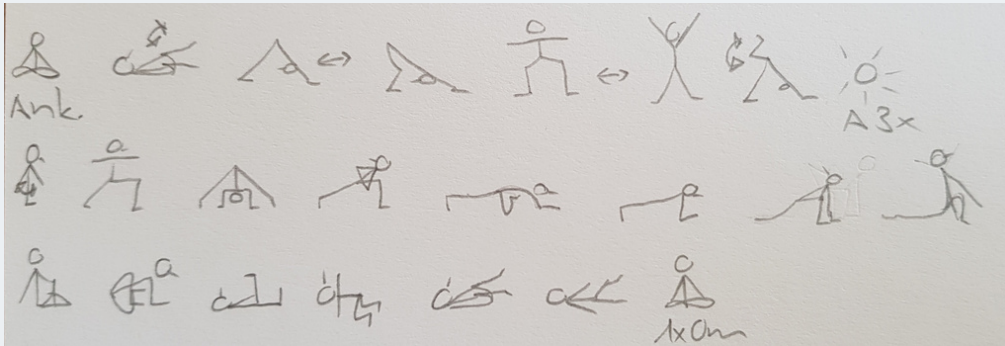 Ank.
A 3x
1x Om